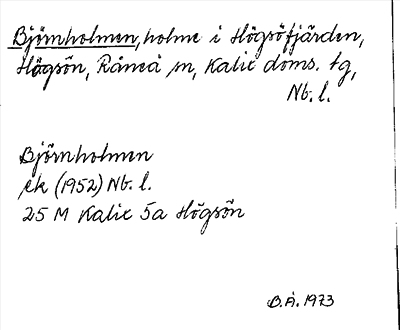 Björnholmen, holme i Högsöfjärden,
Högsön, Råneå sn, Kalix doms. tg,
Nb. l.
Björnholmen
ek (1952) Nb. l.
25 M Kalix 5a Högsön
B.Å. 1973